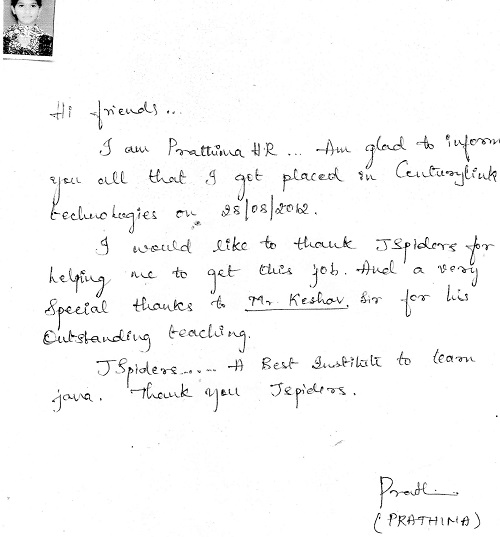 Hi friends...
I am Prathima H.R ... Am glad to inform
you all that I get placed in Centurylink
technologies on 28/08/2012.
I would like to thank JSpiders for
helping me to get this job. And a very
Special thanks to Mr. Keshav. Sir for his
Outstanding teaching.
JSpiders..... A Best Institute to learn
java. Thank you Jspiders.
Prathi
(PRATHIMA)